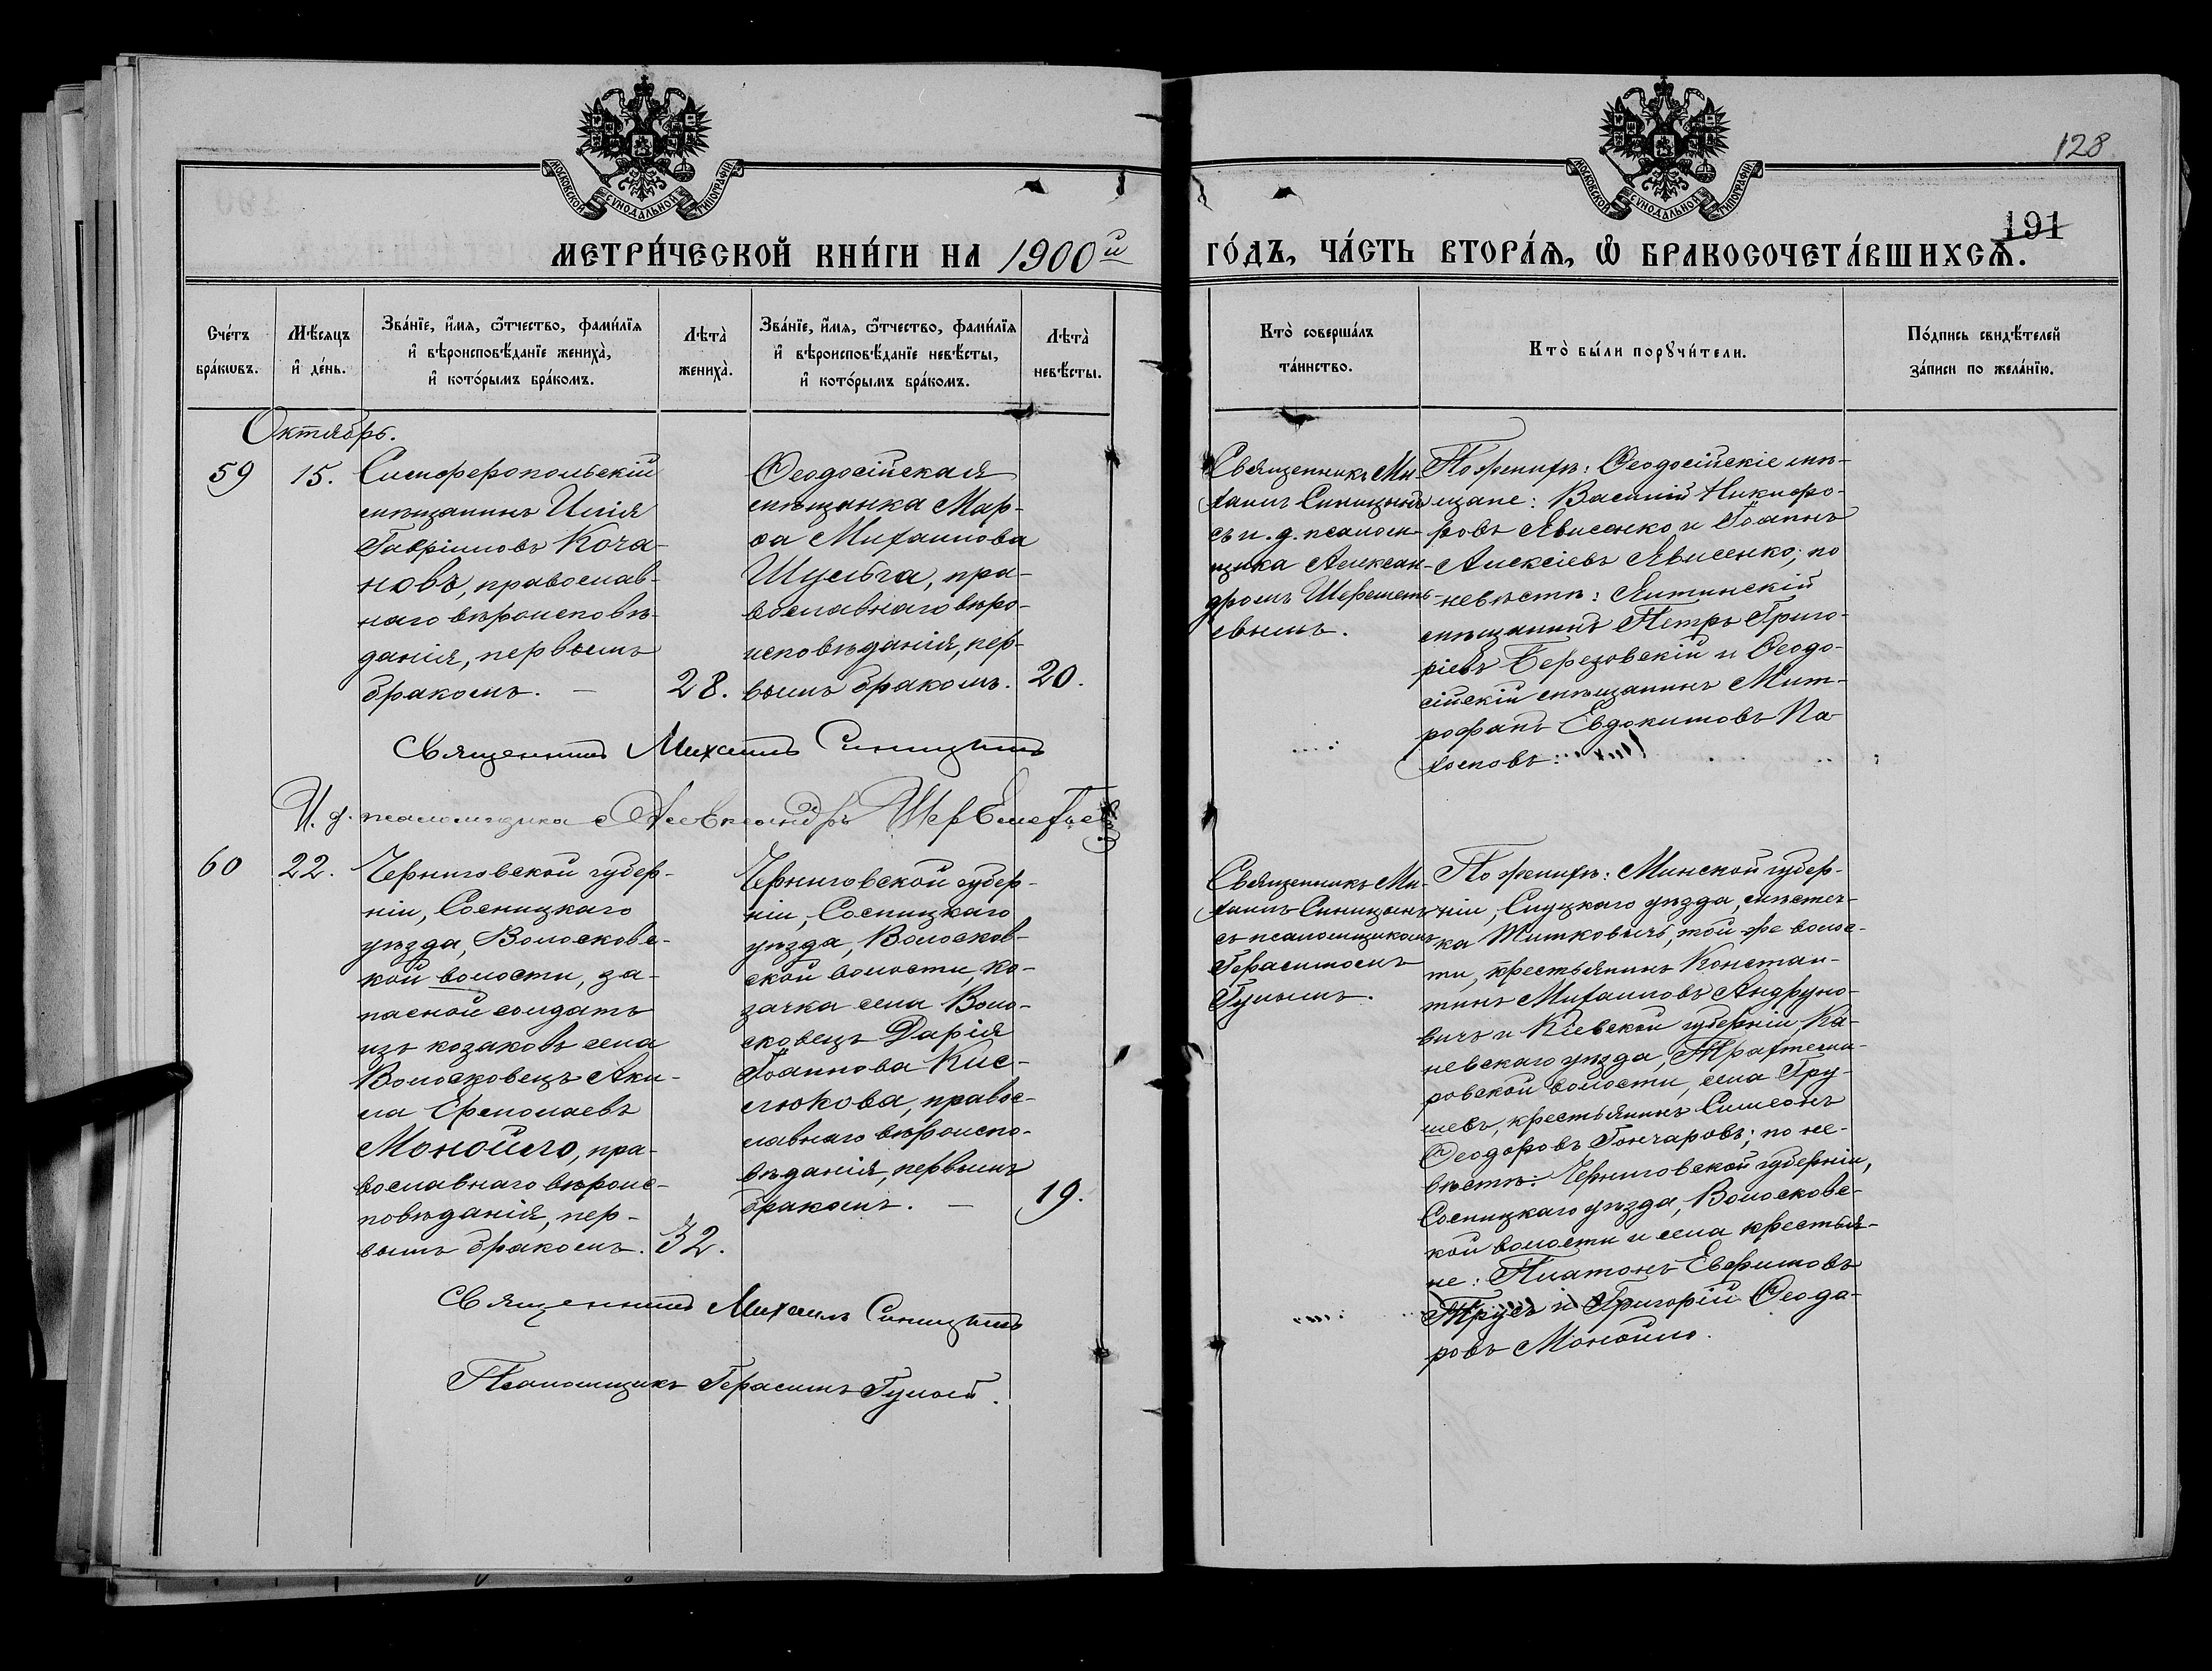 128
191
МОСКОВСКОЙ СѴНОДАЛЬНОЙ ТИПОГРАФІИ
МОСКОВСКОЙ СѴНОДАЛЬНОЙ ТИПОГРАФІИ
МЕТРИ́ЧЕСКОЙ КНИ́ГИ НА 1900й
ГО́ДЪ, ЧА́СТЬ ВТОРА́Ѧ, Ѽ БРАКОСОЧЕТА́ВШИХСѦ.
Сче́тъ
бра́кωвъ.
Мѣ́сяцъ
и҆ де́нь.
Зва́нїе, и҆́мя, ѻ҆́тчество, фами́лїя
и҆ вѣроисповѣ́данїе жениха̀,
и҆ кото́рымъ бра́комъ.
Лѣта̀
жениха̀.
Зва́нїе, и҆́мя, ѻ҆́тчество, фами́лїя
и҆ вѣроисповѣ́данїе невѣ́сты,
и҆ кото́рымъ бра́комъ.
Лѣта̀
невѣ́сты.
Кто̀ соверша́лъ
та́инство.
Кто̀ бы́ли порꙋчи́тели.
По́дпись свидѣ́телей
за́писи по жела́нїю.
Октябрь.
59
15.
Симферопольскій
мѣщанинъ Илія
Гавріиловъ Коча-
новъ, православ-
наго вѣроисповѣ-
данія, первымъ
бракомъ. —
28.
Ѳеодосійская
мѣщанка Мар-
ѳа Михаилова
Шульга, пра-
вославнаго вѣро-
исповѣданія, пер-
вымъ бракомъ.
20.
Священникъ Ми-
хаилъ Синицынъ
съ и. д. псалом-
щика Алексан-
дромъ Шереметь-
евымъ.
По женихѣ: Ѳеодосійскіе мѣ-
щане: Василій Никифо-
ровъ Явисенко и Іоаннъ
Алексіевъ Явисенко; по
невѣстѣ: Ялтинскій
мѣщанинъ Петръ Григо-
ріевъ Березовскій и Ѳеодо-
сійскій мѣщанинъ Мит-
рофанъ Евдокимовъ Па-
хомовъ.
Священникъ Михаилъ Синицынъ
И. д. псаломщика Александръ Шереметьевъ
60
22.
Черниговской губер-
ніи, Сосницкаго
уѣзда, Волосковс-
кой волости, за-
пасной солдатъ
изъ козаковъ села
Волосковецъ Аки-
ла Ермолаевъ
Монойло, пра-
вославнаго вѣроис-
повѣданія, пер-
вымъ бракомъ.
32.
Черниговской губер-
ніи, Сосницкаго
уѣзда, Волосков-
ской волости, ко-
зачка села Воло-
сковецъ Дарія
Іоаннова Кис-
люкова, правос-
лавнаго вѣроиспо-
вѣданія, первымъ
бракомъ. —
19.
Священникъ Ми-
хаилъ Синицынъ
съ псаломщикомъ
Герасимомъ
Гулымъ.
По женихѣ: Минской губер-
ніи, Слуцкаго уѣзда, мѣстеч-
ка Тимковичъ, той-же волос-
ти, крестьянинъ Констан-
тинъ Михаиловъ Андруно-
вичъ и Кіевской губерніи, Ка-
невскаго уѣзда, Трахтеми-
ровской волости, села Гру-
шевъ, крестьянинъ Симеонъ
Ѳеодоровъ Гончаровъ; по не-
вѣстѣ: Черниговской губерніи,
Сосницкаго уѣзда, Волосковс-
кой волости и села крестья-
не: Платонъ Евфимовъ
Трусъ и Григорій Ѳеодо-
ровъ Монойло.
Священникъ Михаилъ Синицынъ
Псаломщикъ Герасимъ Гулый.